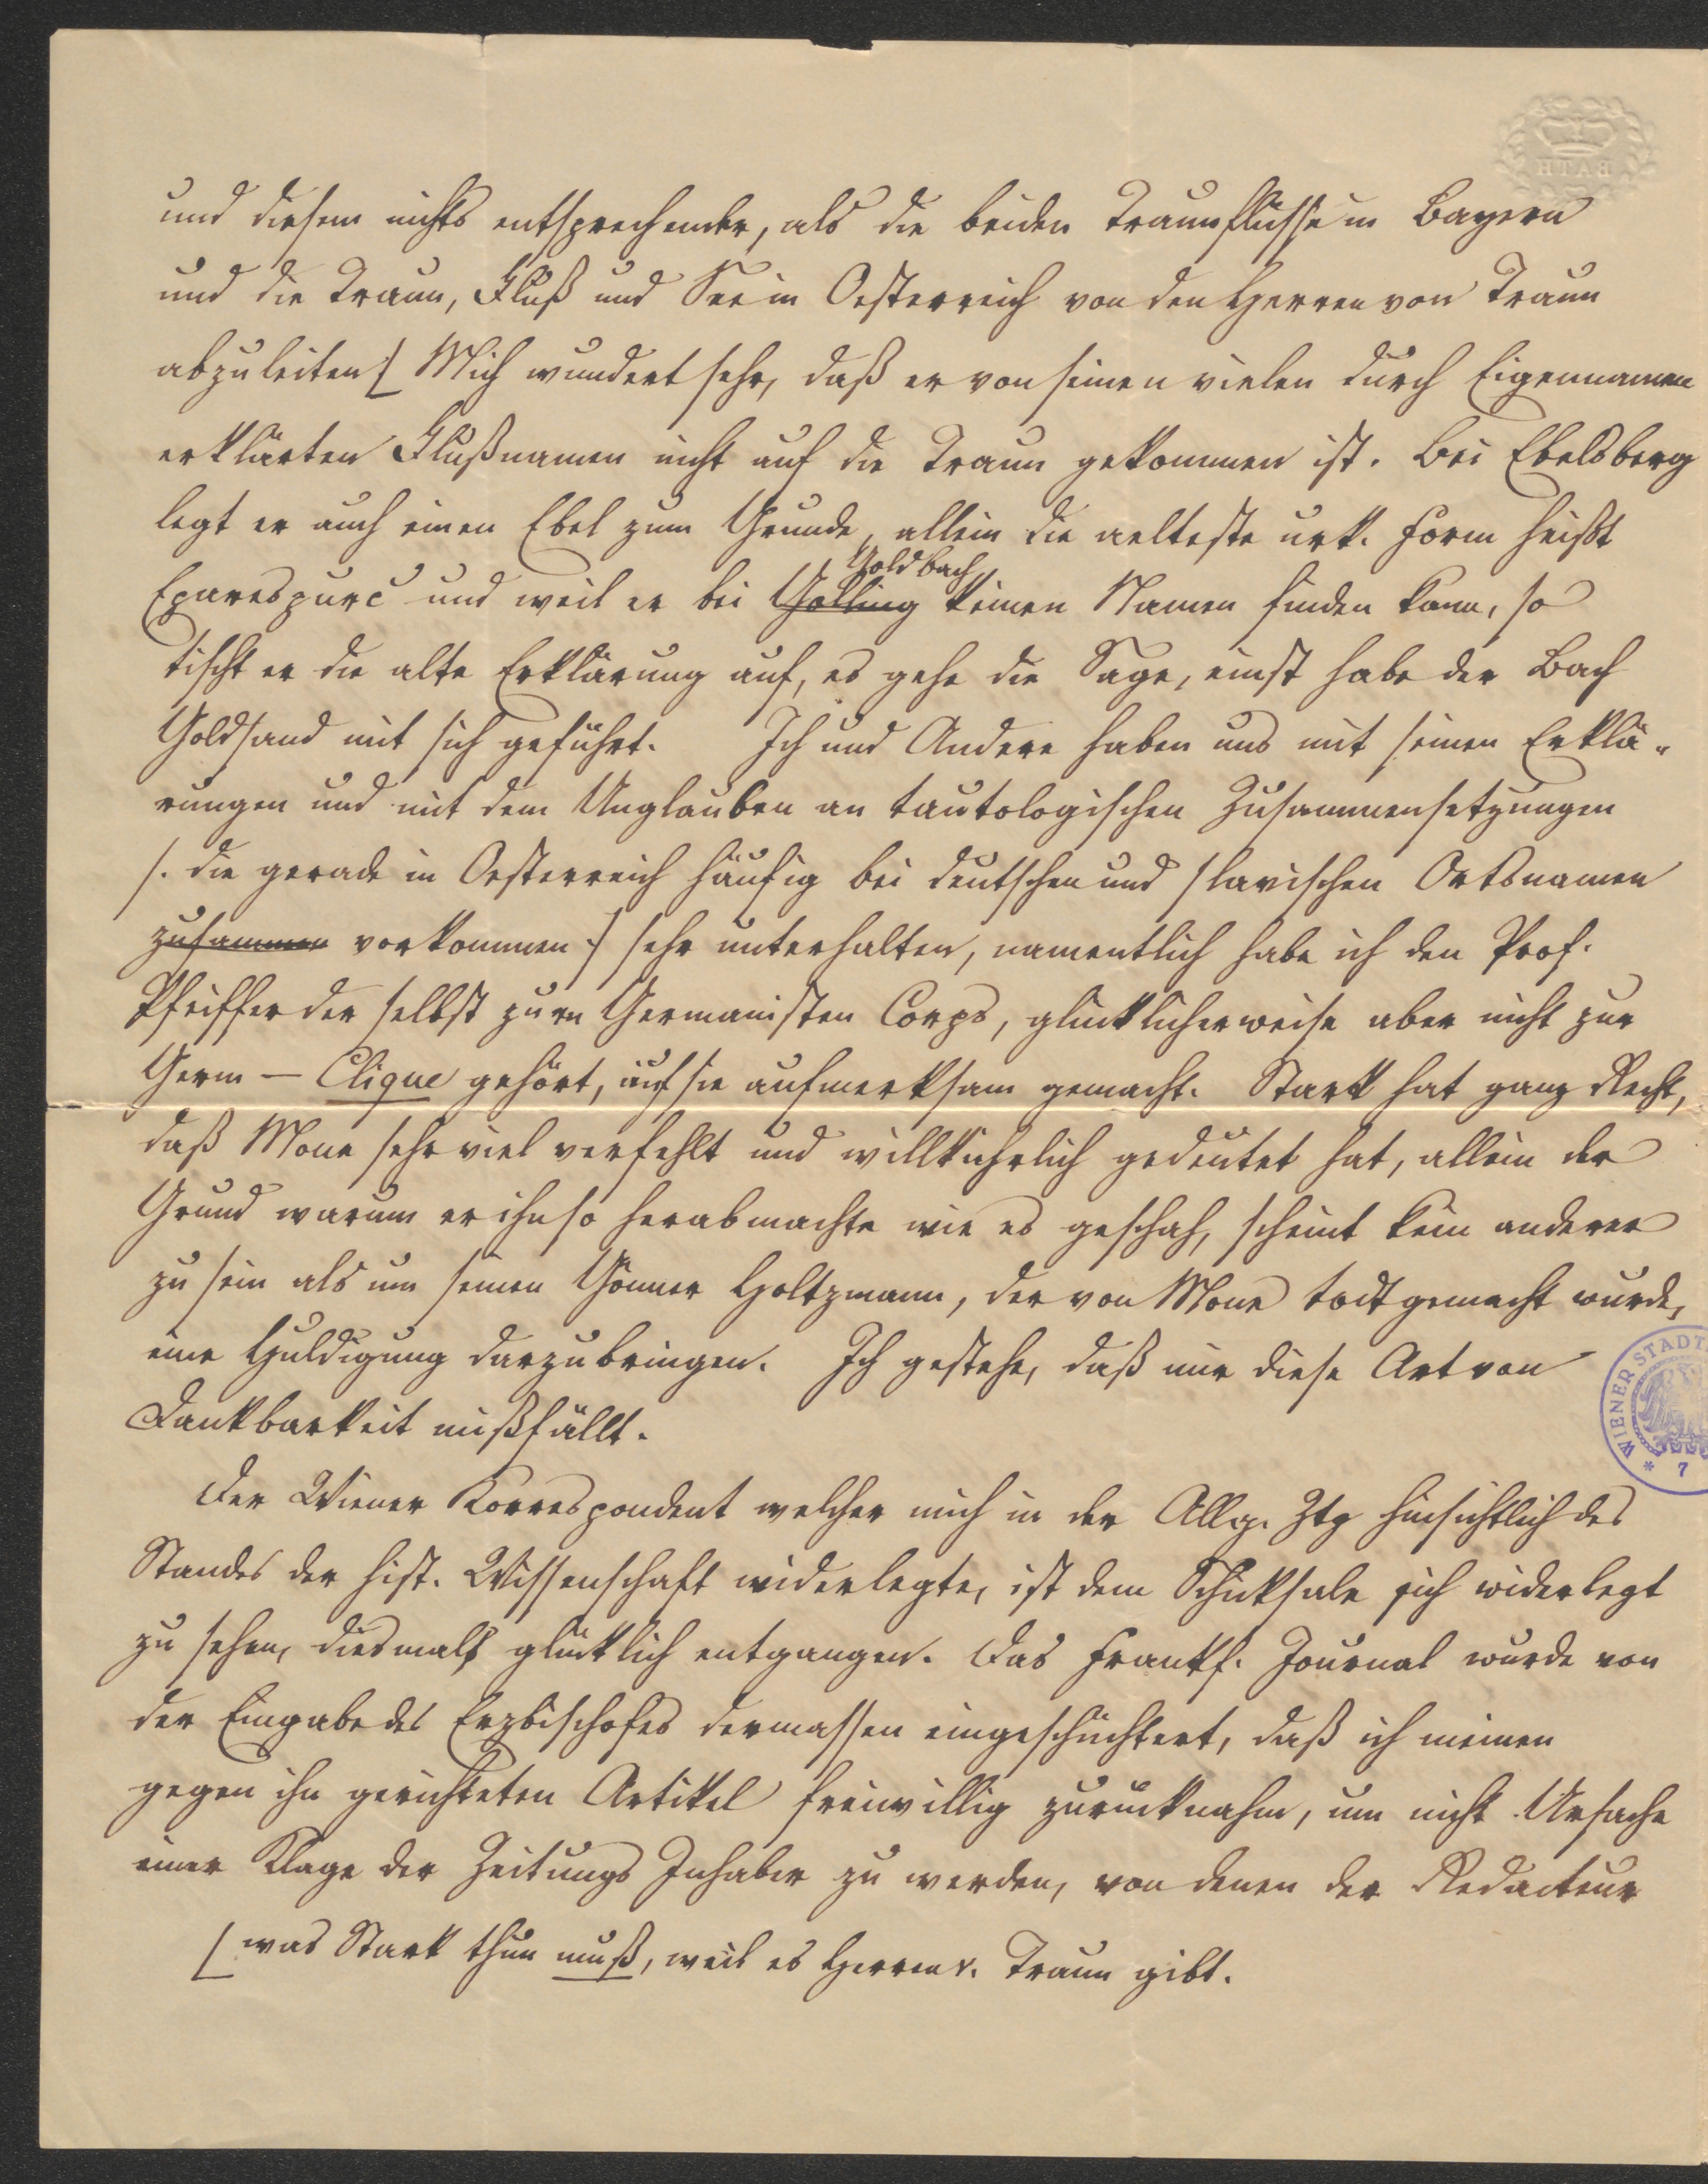 BATH
und diesem nichts entsprechender, als die beiden Traunflüsse in Bayern
und die Traun, Fluß und See in Oesterreich von den Herren von Traun
abzuleiten [ Mich wundert sehr, daß er von seinen vielen durch Eigennamen
erklärten Flußnamen nicht auf die Traun gekommen ist. Bei Ebelsberg
legt er auch einen Ebel zum Grunde, allein die aelteste urk. Form heißt
Goldbach
Eparespurc und weil er bei Golling keinen Namen finden kann, so
tischt er die alte Erklärung auf, es gehe die Sage, einst habe der Bach
Goldsand mit sich geführt. Ich und Andere haben uns mit seinen Erklä-
rungen und mit dem Unglauben an tautologischen Zusammensetzungen
/. die gerade in Oesterreich häufig bei deutschen und slavischen Ortsnamen
zusammen vorkommen ./ sehr unterhalten, namentlich habe ich den Prof.
Pfeiffer der selbst zum Germanisten Corps, glücklicherweise aber nicht zur
Germ – Clique gehört, auf sie aufmerksam gemacht. Stark hat ganz Recht,
daß Mone sehr viel verfehlt und willkührlich gedeutet hat, allein der
Grund warum er ihn so herabmachte wie es geschah, scheint kein anderer
zu sein als um seinen Gönner Holtzmann, der von Mone todt gemacht wurde,
eine Huldigung darzubringen. Ich gestehe, daß mir diese Art von
Dankbarkeit mißfällt.
WIENER STADT
* 7
Der Wiener Korrespondent welcher mich in der Allg. Ztg hinsichtlich des
Standes der hist. Wissenschaft widerlegte, ist dem Schicksale sich widerlegt
zu sehen, diesmals glücklich entgangen. Das Frankf. Journal wurde von
der Eingabe des Erzbischofes dermassen eingeschüchtert, daß ich meinen
gegen ihn gerichteten Artikel freiwillig zurücknahm, um nicht Ursache
einer Klage der Zeitungs Inhaber zu werden, von denen der Redacteur
[ was Stark thun muß, weil es Herren v. Traun gibt.